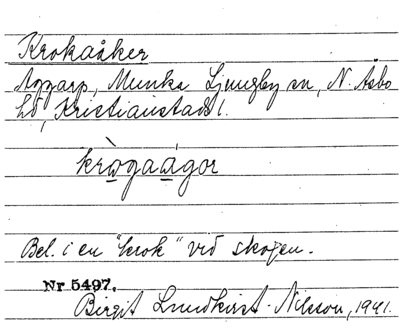 Krokaåker
Aggarp, Munka Ljungby sn, N. Åsbo
hd, Kristianstads l.
krògaágor
Bel. i en "krok" vid skogen.
Nr 5497.
Birgit Lundkvist-Nilsson, 1941.